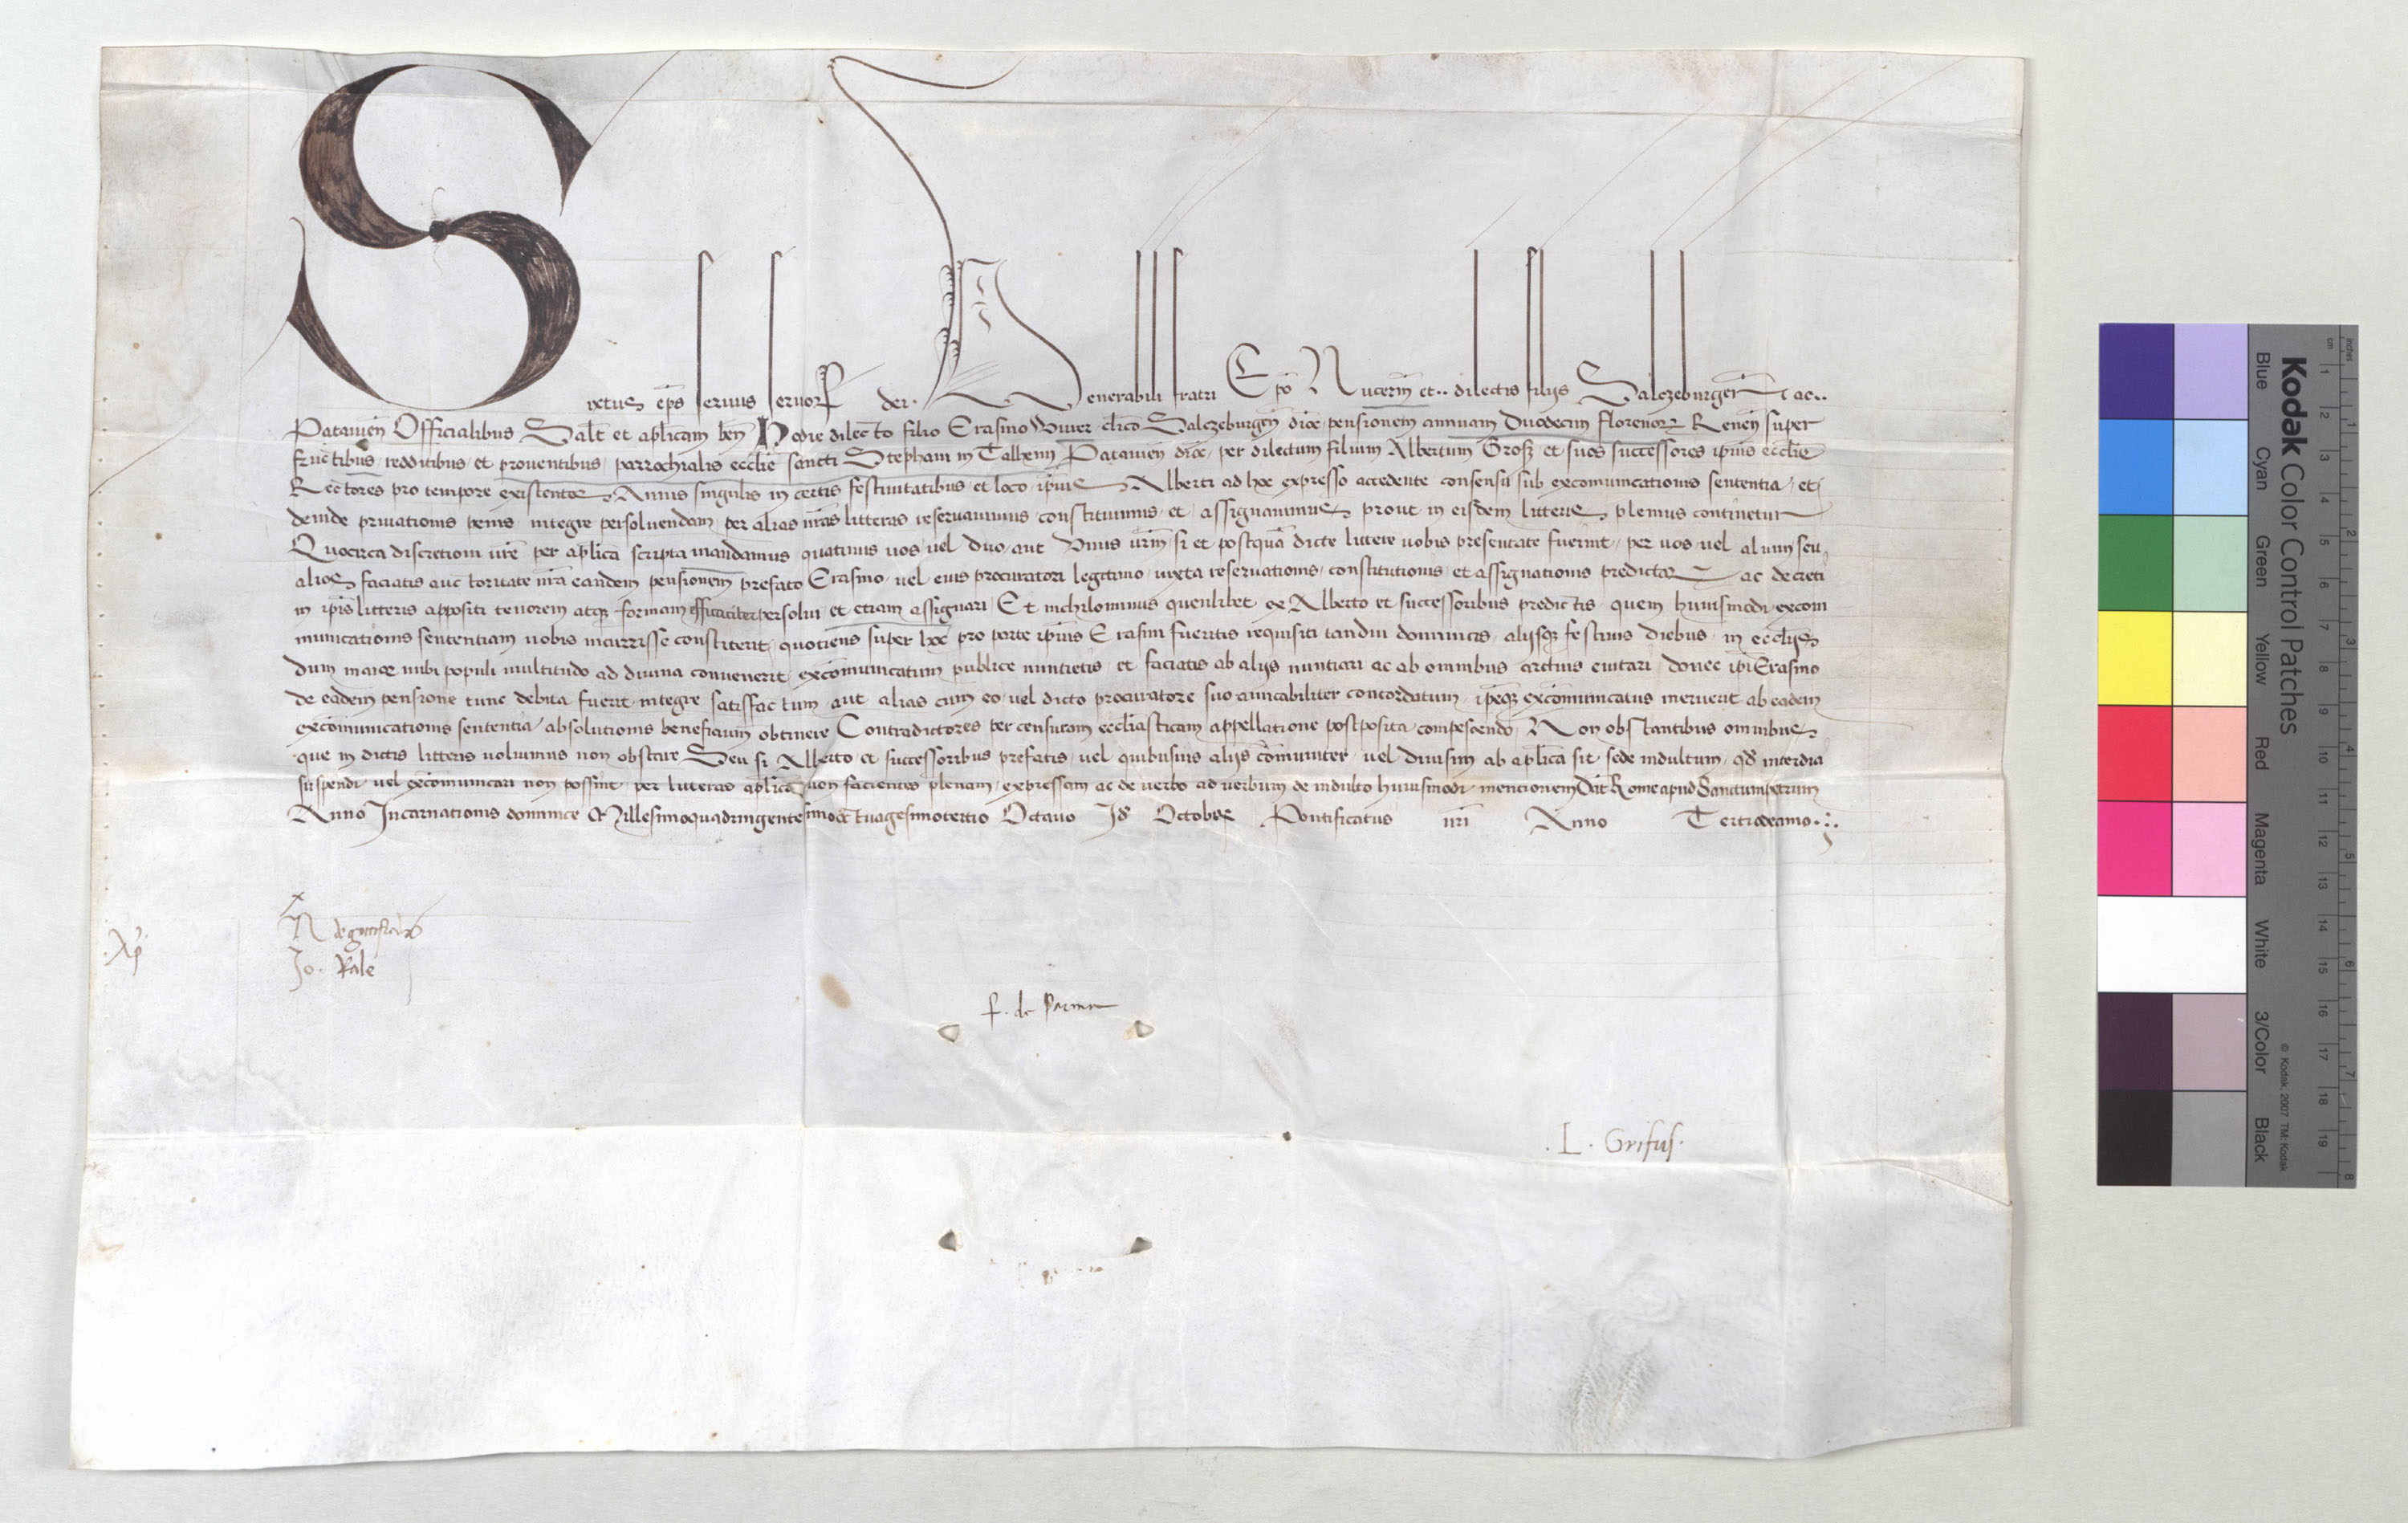 Sixtus ep̄s seruus seruoꝝ dei. Venerabili fratri Ep̄o Nucerin̄ et dilectis filijs Salczeburgen̄ ac
Patauien̄ Officialibus Salt̄ et ap̄licam ben̄ Hodie dilecto filio Erasmo clico Salczeburgen̄ dioc̄ pensionem annuam Duodecim florenoꝝ Renen̄ super
fructibus redditibus et prouentibus parrochialis ecclie sancti Stephani in Talhem Patauien̄ dioc̄ per dilectum filium Albertum Grosz et suos successores ipsius ecclie
Rectores pro tempore existentes Annis singulis in certis festiuitatibus et loco ipsius Alberti ad hoc expresso accedente consensu sub excomunicationis sententia et
deinde priuationis penis integre persoluendam per alias nr̄as litteras reseruauimus constituimus et assignauimus prout in eisdem litteris plenius continetur
Quocirca discretioni vr̄e per ap̄lica scripta mandamus quatinus vos vel duo aut Vnus vr̄m si et postquā dicte littere vobis presentate fuerint per vos vel alium seu
alios faciatis auctoritate nr̄a eandem pensionem prefato Erasmo vel eius procuratori legitimo iuxta reseruationis constitutionis et assignationis predictaꝝ ac decreti
in ip̄is litteris appositi tenorem atqꝫ formam efficaciter persolui et etiam assignari Et nichilominus quenlibet ex Alberto et successoribus predictis quem huiusmodi excom
municationis sententiam vobis incurrisse constiterit quotiens super hoc pro parte ipsius Erasmi fueritis requisiti tandiu dominicis alijsqꝫ festiuis diebus in ecclijs
dum maior inibi populi multitudo ad diuina conuenerit excomunicatum publice nuntietis et faciatis ab alijs nuntiari ac ab omnibus arctius euitari donec ip̄i Erasmo
de eadem pensione tunc debita fuerit integre satisfactum aut alias cum eo vel dicto procuratore suo amicabiliter concordatum ipseqꝫ excomunicatus meruerit ab eadem
excomunicationis sententia absolutionis beneficium obtinere Contradictores per censuram eccliasticam appellatione postposita compescendo Non obstantibus omnibus
que in dictis litteris volumus non obstare Seu si Alberto et successoribus prefatis vel quibusuis alijs comuniter vel diuisim ab ap̄lica sit sede indultum qđ interdici
suspendi vel excomunicari non possint per litteras ap̄licas non facientes plenam expressam ac de verbo ad verbum de indulto huiusmodi mentionem Dat̄ Rome apud Sanctumpetrum
Anno Incarnationis dominice Millesimoquadringentesimooctuagesimotertio Octauo Id̄ Octobꝝ Pontificatus nr̄i Anno Tertiodecimo
Jo. Kale
f. de Parma
.L. Grifus.
Kodak Color Control Patches
Blue Cyan Green Yellow Red Magenta White 3/Color Black
© Kodak, 2007 TM: Kodak
inches 1 2 3 4 5 6 7 8
cm 1 2 3 4 5 6 7 8 9 10 11 12 13 14 15 16 17 18 19